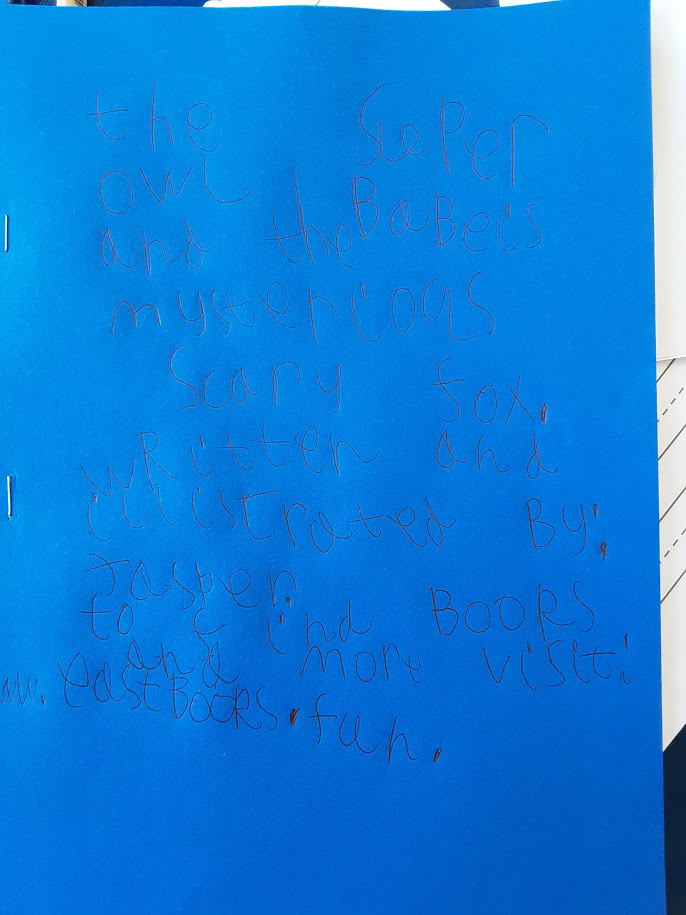 the Sceper
owl
and the BaBeis
mysterioas
Scary fox.
wRitten and
illistrated By:
Jasper.
to find BOORS
and more visit:
ww. eastBOORS.fun.